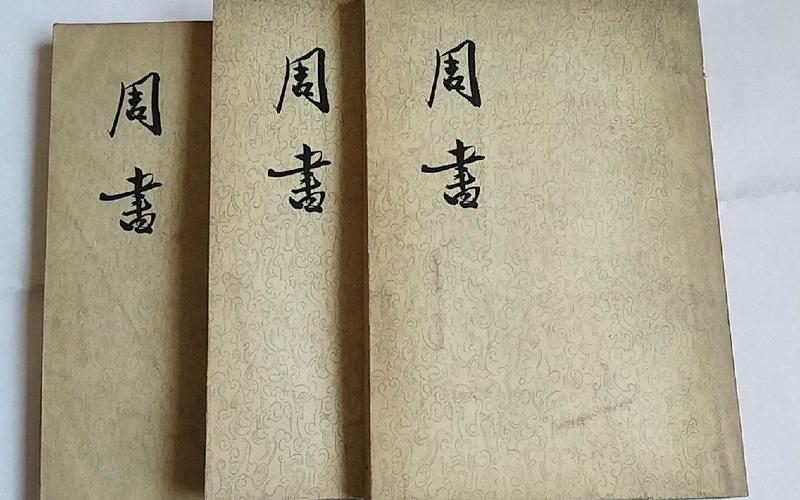 周書
周書
周書